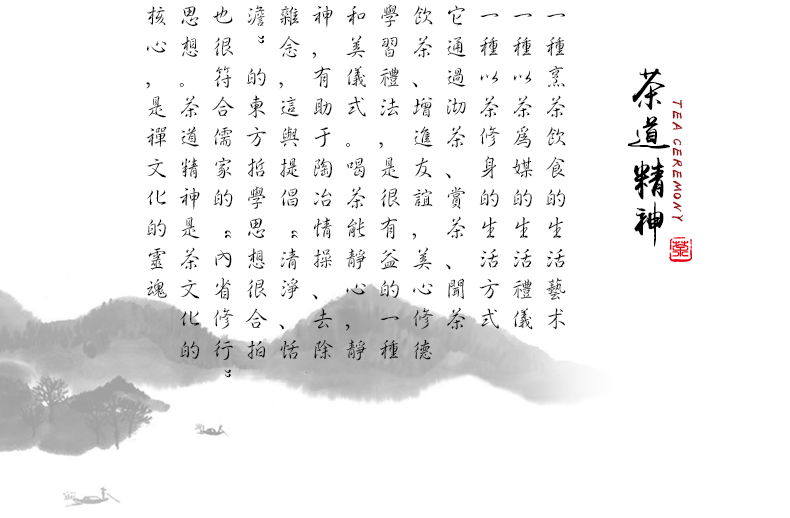 茶道精神
TEA CEREMONY
茶
一種烹茶飲食的生活藝术
一種以茶爲媒的生活禮儀
一種以茶修身的生活方式
它通過沏茶、賞茶、聞茶
飲茶、增進友誼,美心修德
學習禮法,是很有益的一種
和美儀式。喝茶能靜心,靜
神,有助于陶冶情操、去除
雜念,這與提倡“清淨、恬
澹”的東方哲學思想很合拍
也很符合儒家的“內省修行”
思想。茶道精神是茶文化的
核心,是禪文化的靈魂